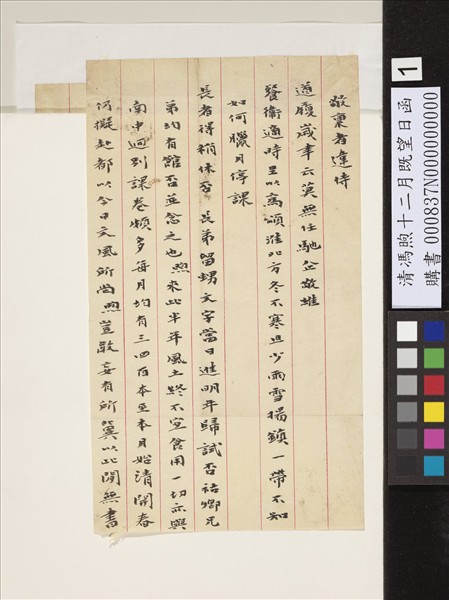 敬稟者違侍
道履歲聿云莫無任馳企敬維
餐衛適時至以為頌淮北方冬不寒且少雨雪揚鎮一帶不知
如何臘月停課
長者得稍休否 長弟留甥文字當日進明年歸試否詒卿兄
弟均有館否並念之也煦來此半年風土終不宜食用一切亦與
南中迥別課卷頗多每月均有三四百本至本月始清開春
仍擬赴都以今日文風所尚煦豈敢妄有所冀以此間無書
清馮煦十二月既望日函
購書 000837N000000000
1